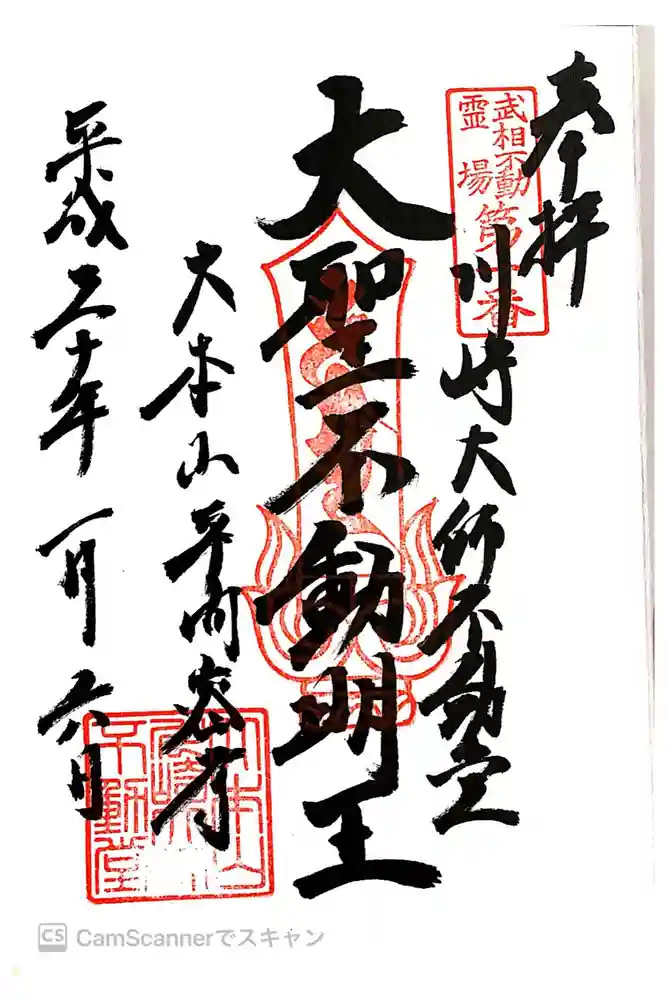 奉拝
武相不動
霊場
第一番
川崎大師不動堂
大聖不動明王
大本山平間寺
平成三十年一月六日
不動堂
CS CamScannerでスキャン